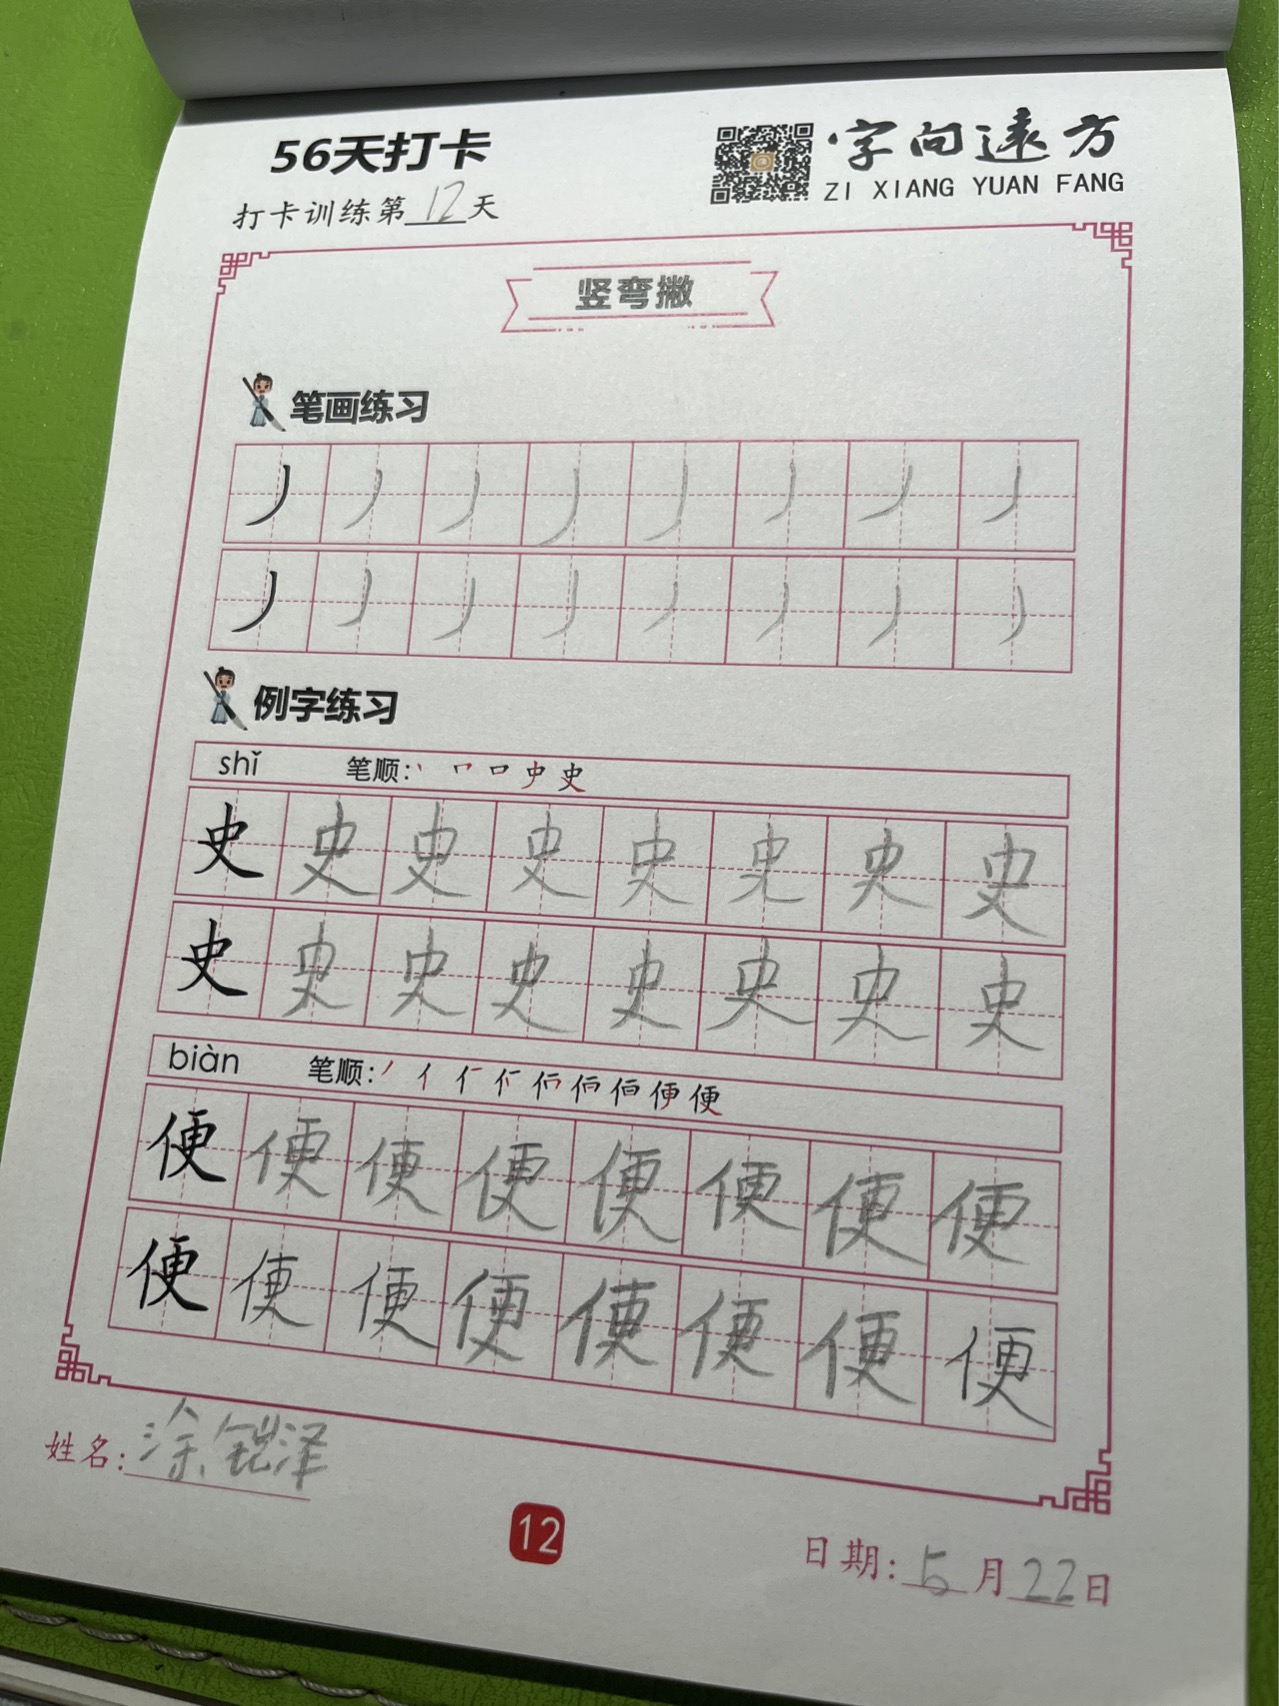 56天打卡
字向遠方
ZI XIANG YUAN FANG
打卡训练第12天
竖弯撇
笔画练习
丿 丿 丿 丿 丿 丿 丿 丿
丿 丿 丿 丿 丿 丿 丿 丿
例字练习
shǐ 笔顺: 丨 𠃍 口 史 史
史 史 史 史 史 史 史 史
史 史 史 史 史 史 史 史
biàn 笔顺: 丿 亻 便 便
便 便 便 便 便 便 便 便
便 便 便 便 便 便 便 便
姓名: 涂铠泽
12
日期: 5月22日